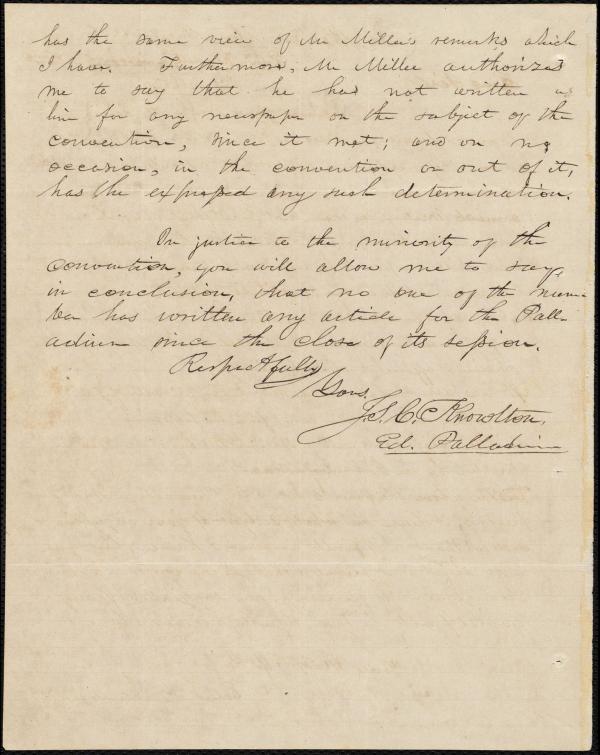 has the same view of Mr Miller's remarks which
I have. Furthermore, Mr Miller authorizes
me to say that he has not written a
line for any newspaper on the subject of the
convention, since it met; and on no
occasion, in the convention or out of it,
has he expressed any such determination.
In justice to the minority of the
convention, you will allow me to say,
in conclusion, that no one of the num-
ber has written any article for the Pall-
adium since the close of its session.
Respectfully
Yours.
J. S. C. Knowlton,
Ed. Palladium